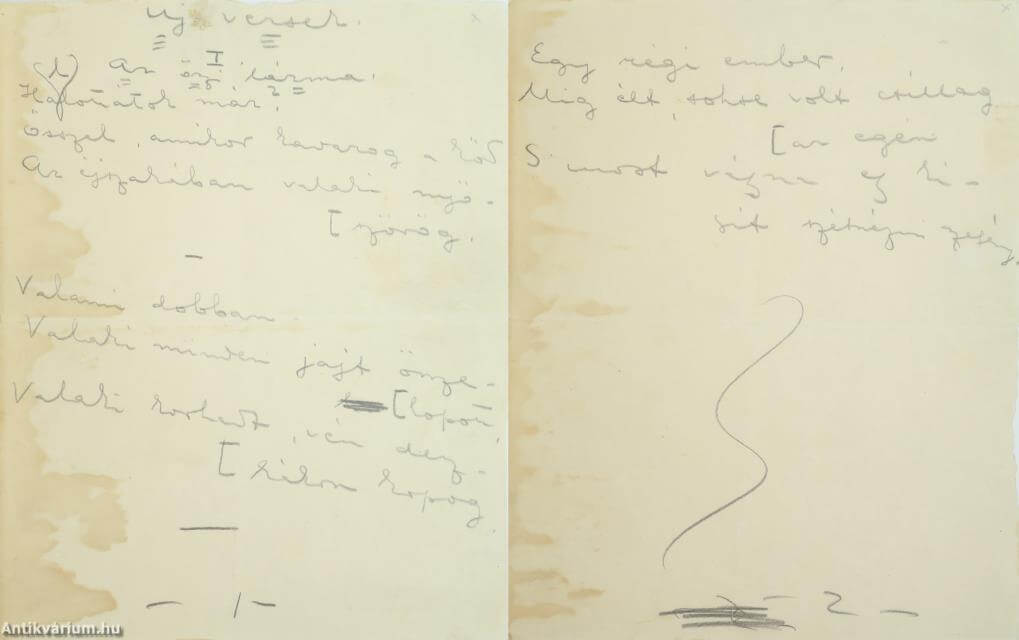 Uj versek.
I
Az őszi lárma.
Hallottátok már,
Ősszel, amikor kavarog a köd
Az éjszakában valaki nyö-
[szörög.
Valami dobban.
Valaki minden jajt össze-
[lopott,
Valaki korhadt, vén desz-
[kákon kopog.
- 1 -
Egy régi ember,
Mig élt, sohse volt csillag
[az egén
S most vágyna egy ki-
csit szétnézni szegény.
- 2 -
Antikvárium.hu